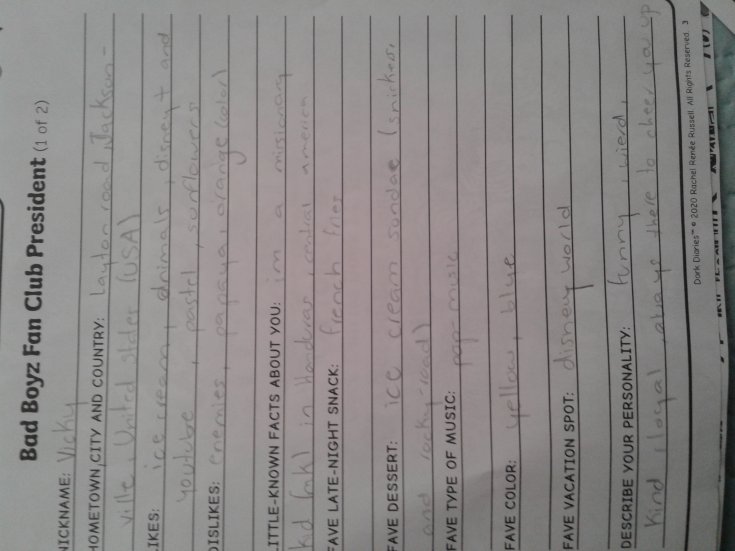 Bad Boyz Fan Club President (1 of 2)
NICKNAME: Vicky
HOMETOWN, CITY AND COUNTRY: Layton road, Jackson-
ville, United states (USA)
IKES: ice cream, animals, disney+ and
youtube, pastel, sunflowers
DISLIKES: enemies, papaya, orange (color)
LITTLE-KNOWN FACTS ABOUT YOU: im a missionary
kid (mk) in Honduras, central america
FAVE LATE-NIGHT SNACK: french fries
FAVE DESSERT: ice cream sundae (snickers,
and rocky road)
FAVE TYPE OF MUSIC: pop music
FAVE COLOR: yellow, blue
FAVE VACATION SPOT: disney world
DESCRIBE YOUR PERSONALITY: funny, wierd,
kind, loyal, always there to cheer you up
Dork Diaries™ © 2020 Rachel Renée Russell. All Rights Reserved. 3